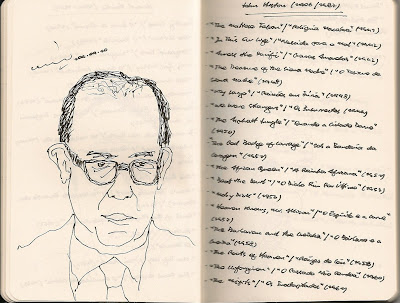 John Huston (1906/1987)
"The Maltese Falcon"/"Relíquia Macabra" (1941)
"In This Our Life"/"Nascida para o mal" (1942)
"Across the Pacific"/"Garras Amarelas" (1942)
"The Treasure of the Sierra Madre"/"O Tesouro da
Sierra Madre" (1948)
"Key Largo"/"Paixões em Fúria" (1948)
"We Were Strangers"/"Os Insurrectos" (1949)
"The Asphalt Jungle"/"Quando a Cidade Dorme"
(1950)
"The Red Badge of Courage"/"Sob a Bandeira da
Coragem" (1951)
"The African Queen"/"A Rainha Africana" (1951)
"Beat the Devil"/"O Diabo Riu por Último" (1953)
"Moby Dick" (1956)
"Heaven Knows, Mr. Allison"/"O Espírito e a Carne"
(1957)
"The Barbarian and the Geisha"/"O Bárbaro e a
Gueixa" (1958)
"The Roots of Heaven"/"Raízes do Céu" (1958)
"The Unforgiven"/"O Passado Não Perdoa" (1960)
"The Misfits"/"Os Inadaptados" (1961)